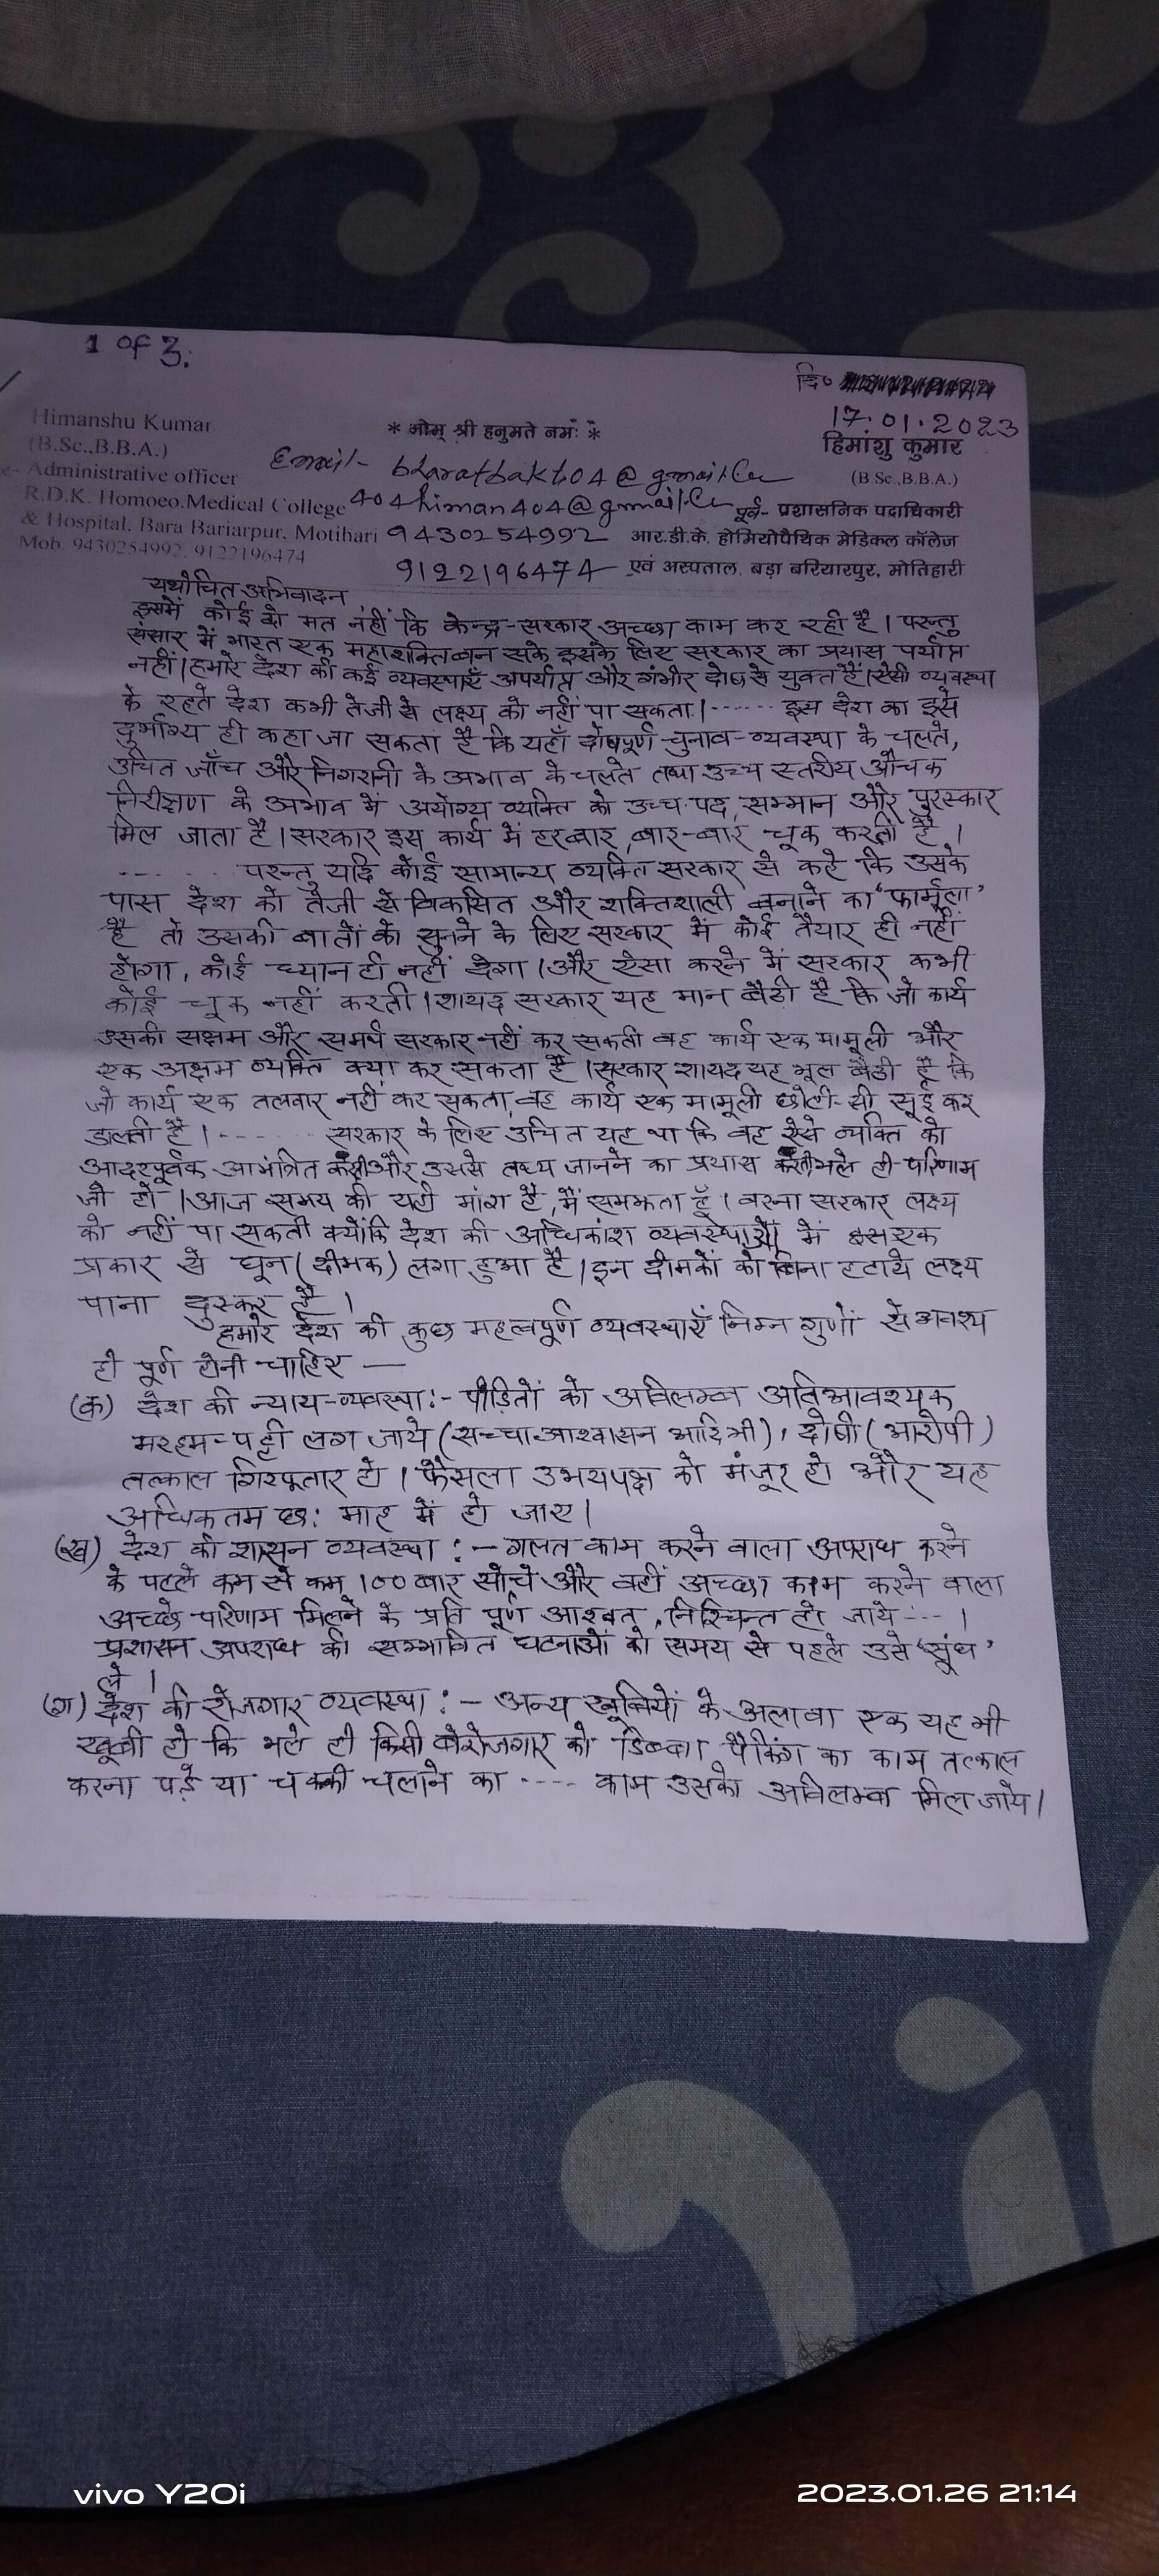 1 of 3.
दि०
17.01.2023
Himanshu Kumar
(B.Sc.,B.B.A.)
Administrative officer
R.D.K. Homoeo.Medical College
& Hospital, Bara Bariarpur, Motihari
Mob. 9430254992, 9122196474
* ओम् श्री हनुमते नमः *
Email- bharatbakt04@gmail.Com
404himan404@gmail.Com
9430254992
9122196474
हिमांशु कुमार
(B.Sc.,B.B.A.)
पूर्व- प्रशासनिक पदाधिकारी
आर.डी.के. होमियोपैथिक मेडिकल कॉलेज
एवं अस्पताल, बड़ा बरियारपुर, मोतिहारी
यथोचित अभिवादन,
इसमें कोई दो मत नहीं कि केन्द्र-सरकार अच्छा काम कर रही है। परन्तु
संसार में भारत एक महाशक्ति बन सके इसके लिए सरकार का प्रयास पर्याप्त
नहीं। हमारे देश की कई व्यवस्थाएँ अपर्याप्त और गंभीर दोष से युक्त हैं। ऐसी व्यवस्था
के रहते देश कभी तेजी से लक्ष्य को नहीं पा सकता।------ इस देश का इसे
दुर्भाग्य ही कहा जा सकता है कि यहाँ दोषपूर्ण चुनाव-व्यवस्था के चलते,
उचित जाँच और निगरानी के अभाव के चलते तथा उच्च स्तरीय औचक
निरीक्षण के अभाव में अयोग्य व्यक्ति को उच्च पद, सम्मान और पुरस्कार
मिल जाता है। सरकार इस कार्य में हरबार, बार-बार चूक करती है।
------ परन्तु यदि कोई सामान्य व्यक्ति सरकार से कहे कि उसके
पास देश को तेजी से विकसित और शक्तिशाली बनाने का 'फार्मूला'
है तो उसकी बातों को सुनने के लिए सरकार में कोई तैयार ही नहीं
होगा, कोई ध्यान ही नहीं देगा। और ऐसा करने में सरकार कभी
कोई चूक नहीं करती। शायद सरकार यह मान बैठी है कि जो कार्य
उसकी सक्षम और समर्थ सरकार नहीं कर सकती वह कार्य एक मामूली और
एक अक्षम व्यक्ति क्या कर सकता है। सरकार शायद यह भूल बैठी है कि
जो कार्य एक तलवार नहीं कर सकता, वह कार्य एक मामूली छोटी-सी सूई कर
डालती है।------ सरकार के लिए उचित यह था कि वह ऐसे व्यक्ति को
आदरपूर्वक आमंत्रित करती और उससे तथ्य जानने का प्रयास करती भले ही परिणाम
जो हो। आज समय की यही मांग है, मैं समझता हूँ। वरना सरकार लक्ष्य
को नहीं पा सकती क्योंकि देश की अधिकांश व्यवस्थाओं में एक
प्रकार से घून (दीमक) लगा हुआ है। इन दीमकों को बिना हटाये लक्ष्य
पाना दुस्कर है।
हमारे देश की कुछ महत्वपूर्ण व्यवस्थाएँ निम्न गुणों से अवश्य
ही पूर्ण होनी चाहिए —
(क) देश की न्याय-व्यवस्था:- पीड़ितों को अविलम्ब अतिआवश्यक
मरहम-पट्टी लग जाये (सच्चा आश्वासन आदि भी), दोषी (आरोपी)
तत्काल गिरफ्तार हो। फैसला उभयपक्ष को मंजूर हो और यह
अधिकतम छ: माह में हो जाए।
(ख) देश की शासन व्यवस्था :- गलत काम करने वाला अपराध करने
के पहले कम से कम 100 बार सोंचे और वहीं अच्छा काम करने वाला
अच्छे परिणाम मिलने के प्रति पूर्ण आश्वत, निश्चिन्त हो जाये---।
प्रशासन अपराध की सम्भावित घटनाओं को समय से पहले उसे 'सूंघ'
ले।
(ग) देश की रोजगार व्यवस्था :- अन्य खूबियों के अलावा एक यह भी
खूबी हो कि भले ही किसी बेरोजगार को डिब्बा पैकिंग का काम तत्काल
करना पड़े या चक्की चलाने का ---- काम उसको अविलम्ब मिल जाये।
vivo Y20i
2023.01.26 21:14